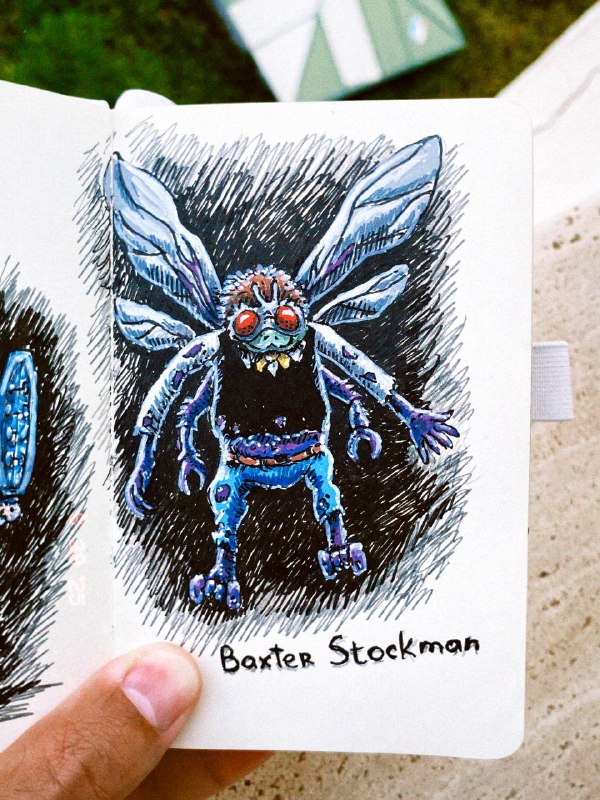 Baxter Stockman